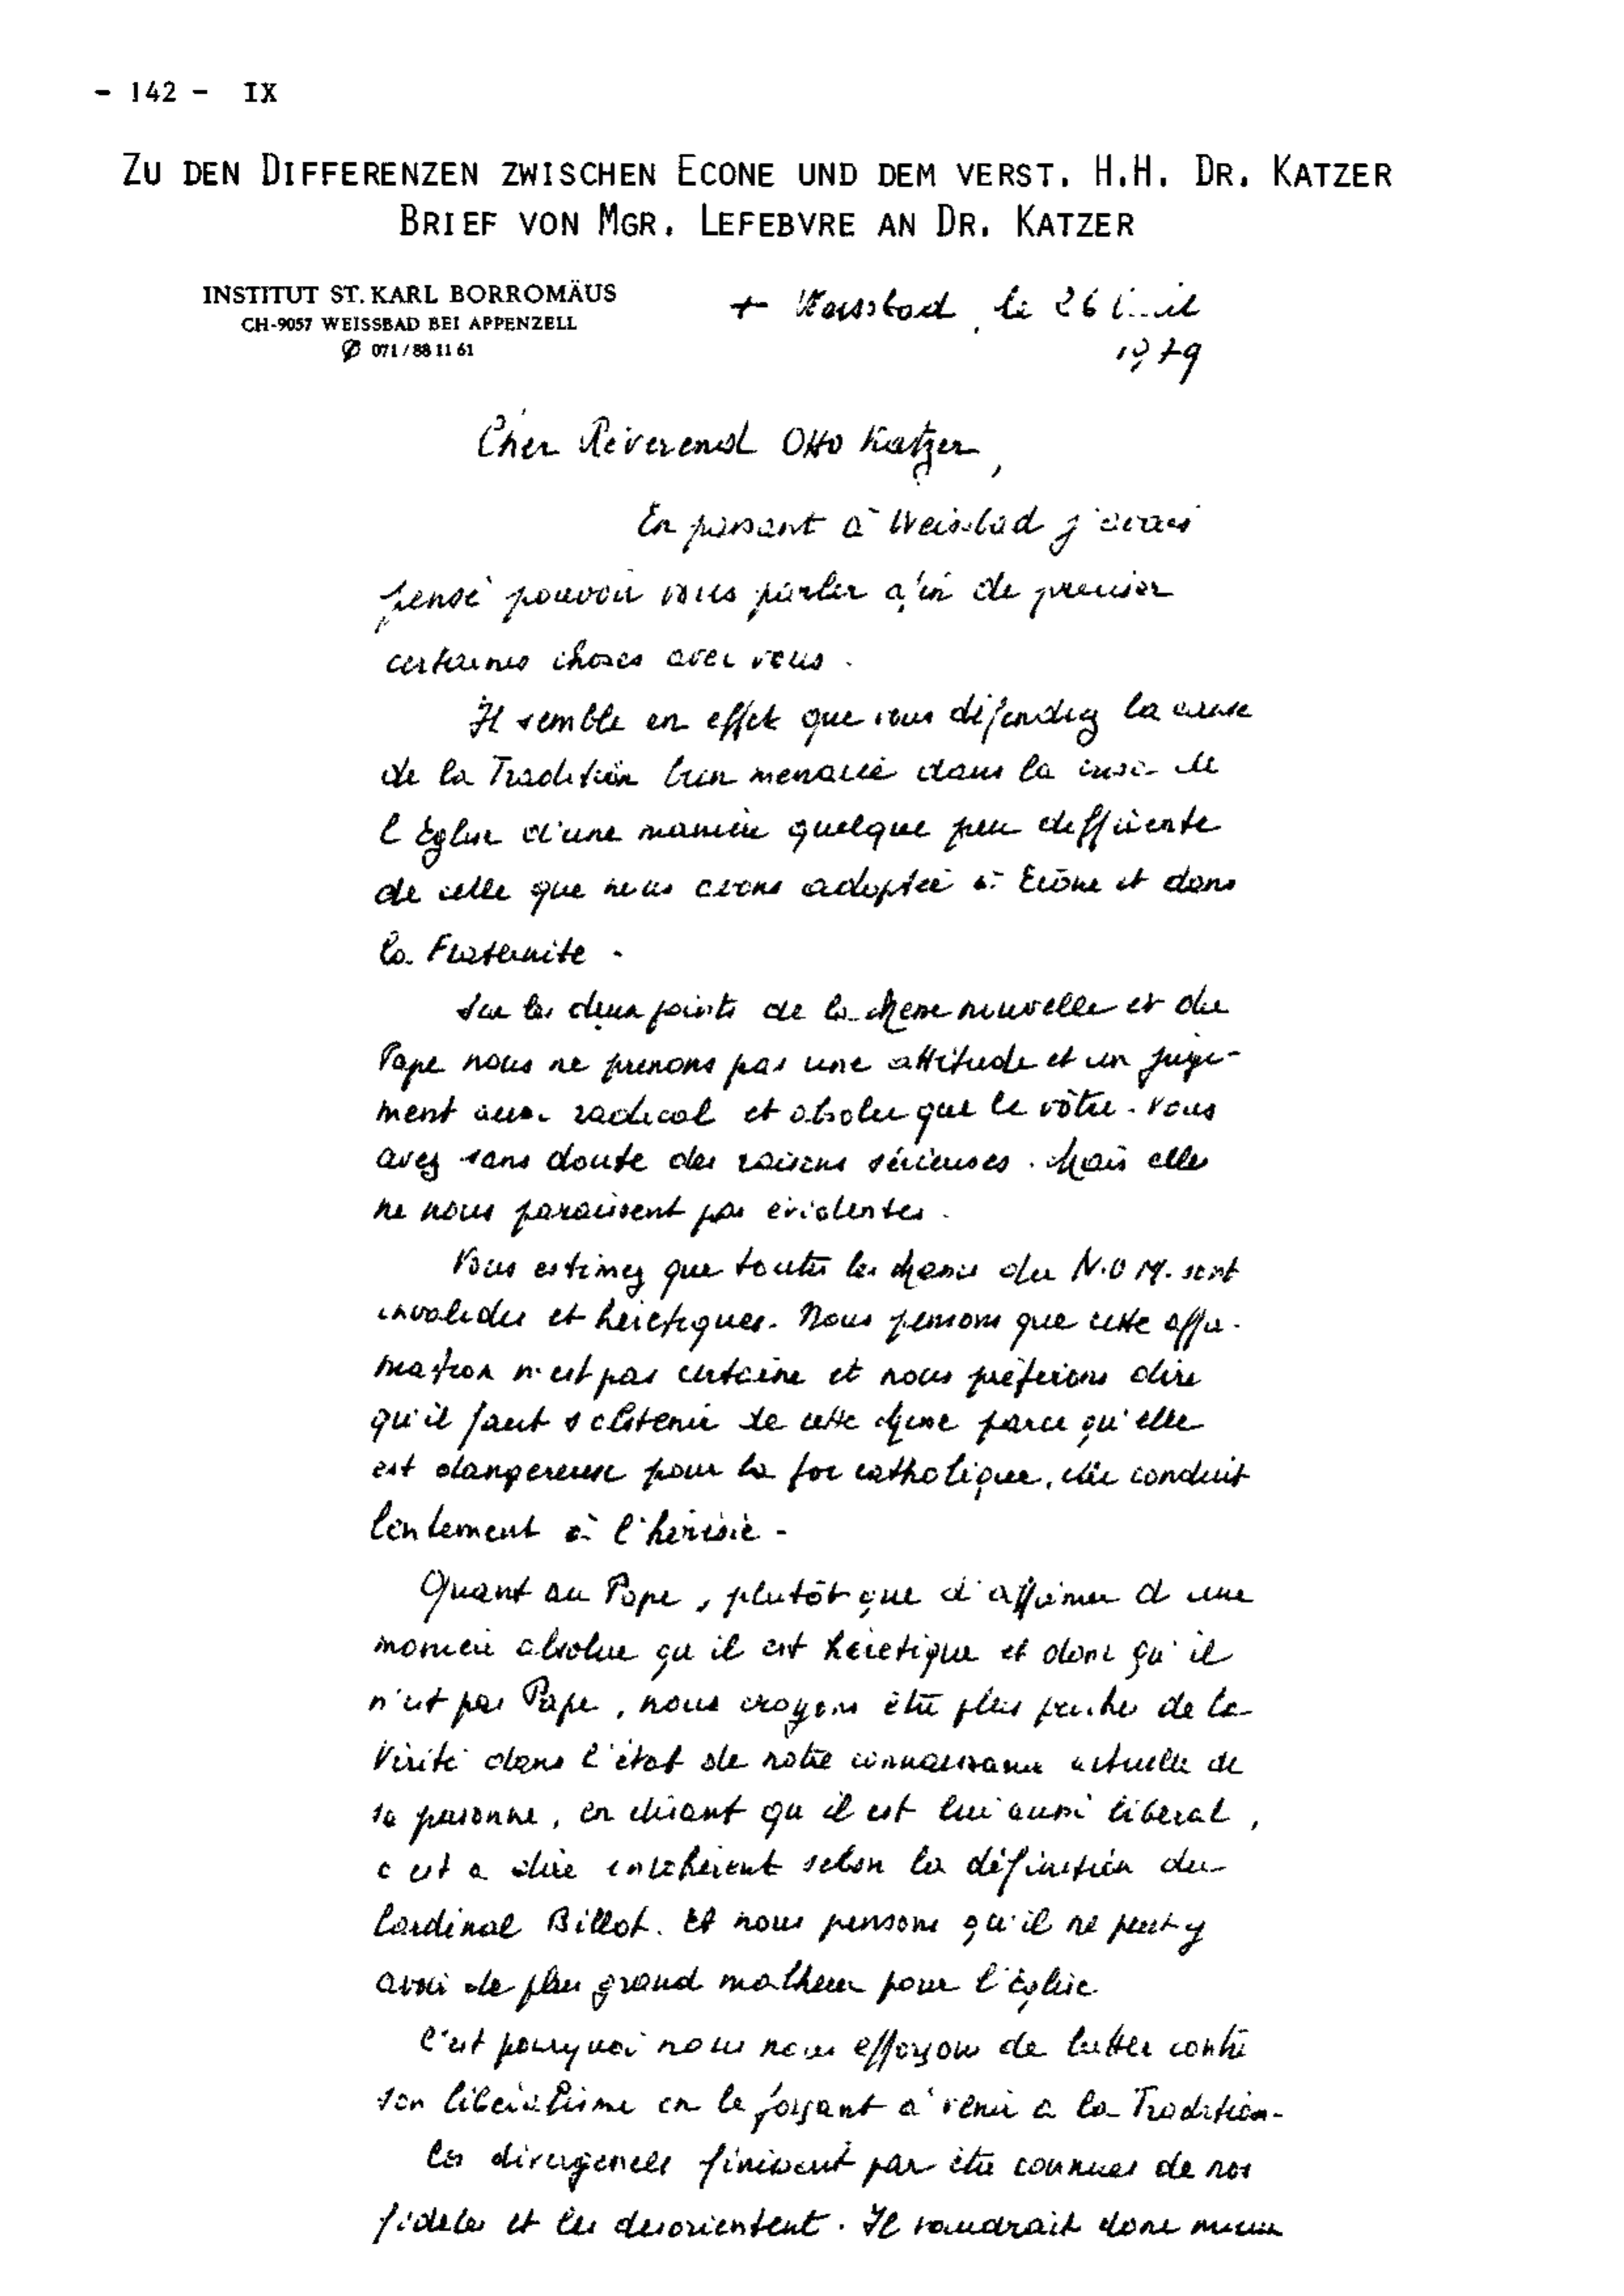 - 142 -   IX
ZU DEN DIFFERENZEN ZWISCHEN ECONE UND DEM VERST. H.H. DR. KATZER
BRIEF VON MGR. LEFEBVRE AN DR. KATZER
INSTITUT ST. KARL BORROMÄUS
CH-9057 WEISSBAD BEI APPENZELL
✆ 071 / 88 11 61
+ Weissbad, le 26
1979
Cher Révérend Otto Katzer,
En passant à Weissbad j'avais
pensé pouvoir vous parler afin de préciser
certaines choses avec vous.
Il semble en effet que vous défendiez la cause
de la Tradition bien menacée dans la crise de
l'Eglise d'une manière quelque peu différente
de celle que nous avons adoptée à Ecône et dans
la Fraternité.
Sur les deux points de la Messe nouvelle et du
Pape nous ne prenons pas une attitude et un juge-
ment aussi radical et absolu que le vôtre. Vous
avez sans doute des raisons sérieuses. Mais elles
ne nous paraissent pas évidentes.
Vous estimez que toutes les Messes du N.O.M. sont
invalides et hérétiques. Nous pensons que cette affir-
mation n'est pas certaine et nous préférons dire
qu'il faut s'abstenir de cette Messe parce qu'elle
est dangereuse pour la foi catholique, elle conduit
lentement à l'hérésie -
Quant au Pape, plutôt que d'affirmer d'une
manière absolue qu'il est hérétique et donc qu'il
n'est pas Pape, nous croyons être plus proches de la
Vérité dans l'état de notre connaissance actuelle de
sa personne, en disant qu'il est lui aussi libéral,
c'est à dire incohérent selon la définition du
Cardinal Billot. Et nous pensons qu'il ne peut y
avoir de plus grand malheur pour l'Eglise.
C'est pourquoi nous nous efforçons de lutter contre
son libéralisme en le forçant à venir à la Tradition -
Ces divergences finissent par être connues de nos
fidèles et les désorientent. Il vaudrait donc mieux